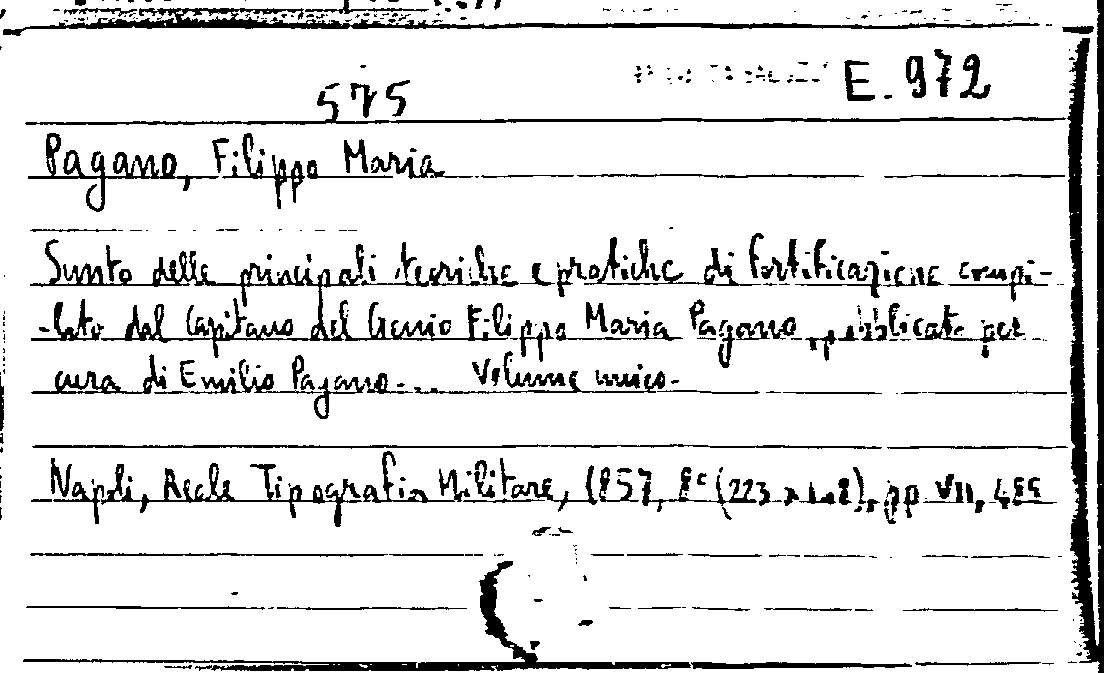 E. 972
575
Pagano, Filippo Maria
Sunto delle principali teoriche e pratiche di fortificazione compi-
-lato dal Capitano del Genio Filippo Maria Pagano, pubblicato per
cura di Emilio Pagano... Volume unico.
Napoli, Reale Tipografia Militare, 1857, 8° (223 x pp. VII,